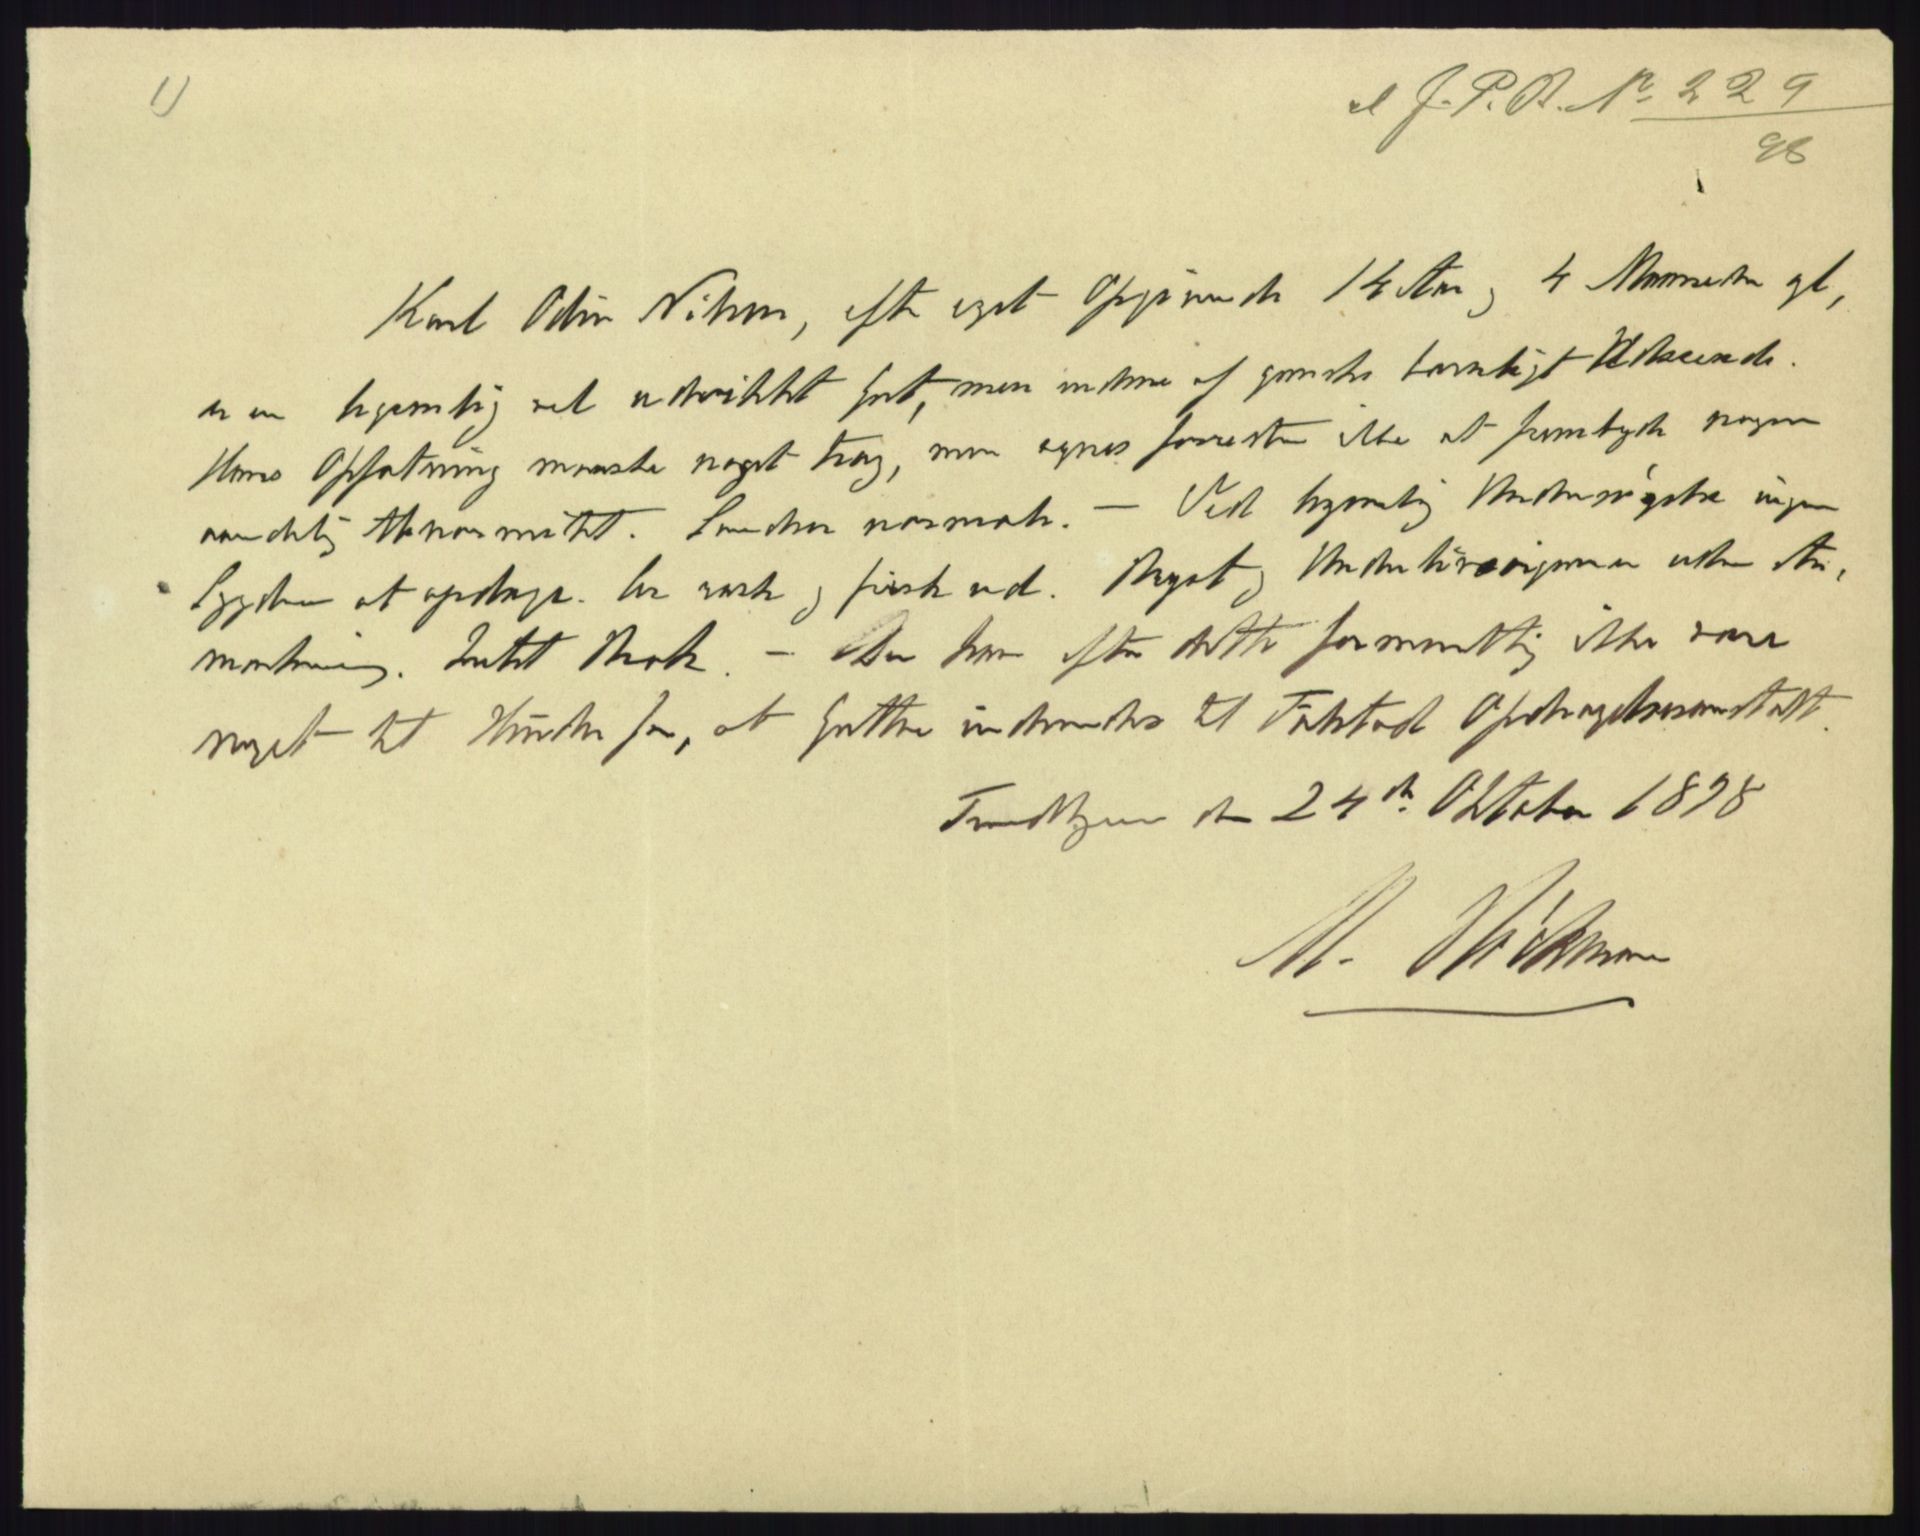 1)
ad J. P. R. No 229
98
Karl Odin Nilsen, efter eget Opgivende 14 Aar og 4 Maaneder gl,
er en legemlig vel udviklet Gut, men endnu af ganske barnligt Udseende.
Hans Opfatning maaske noget træg, men synes forresten ikke at frembyde nogen
aandelig Abnormitet. Sandser normale. — Ved legemlig Undersøgelse ingen
Sygdom at opdage. Ser rask og frisk ud. Bryst og Underlivsorganer uden An-
mærkning. Intet Brok. — Der kan efter dette formentlig ikke være
noget til Hinder for, at Gutten indsendes til Falstad Opdragelsesanstalt.
Trondhjem den 24de Oktober 1898